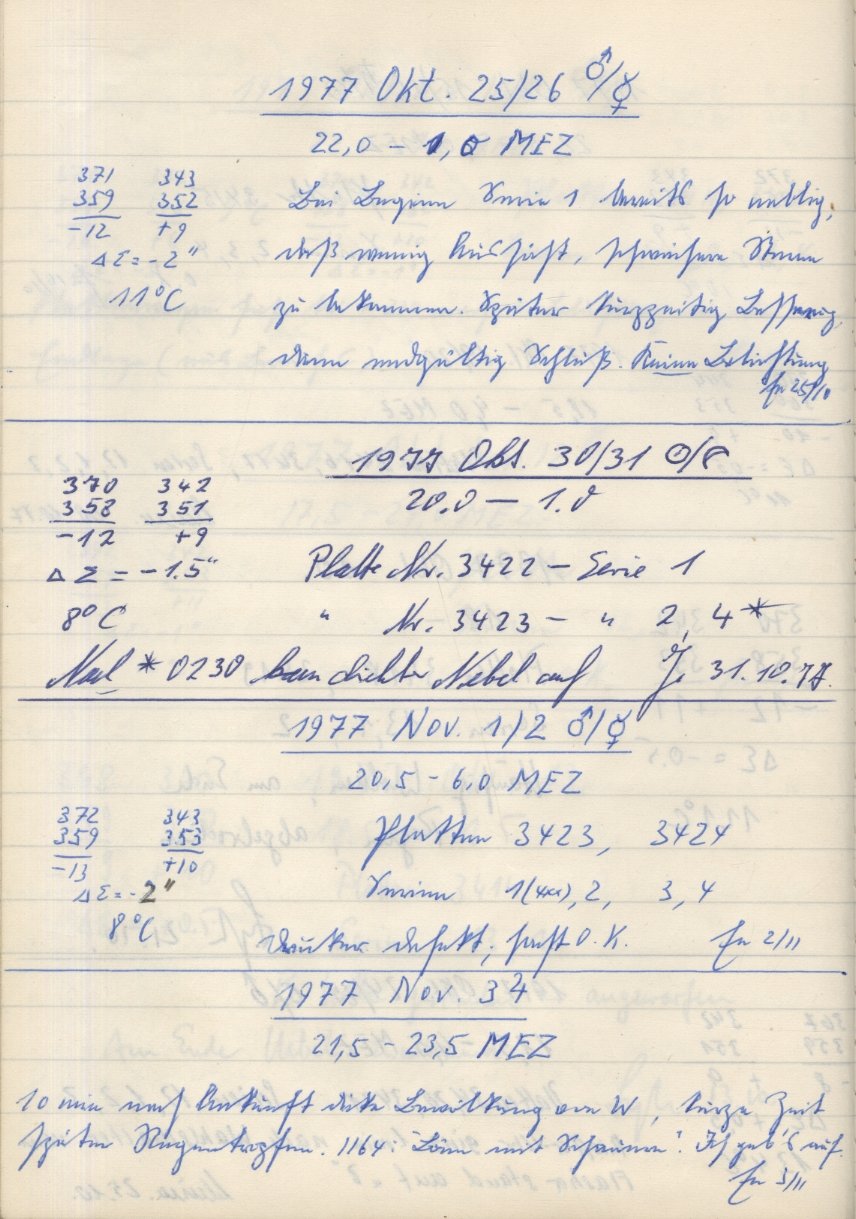 1977 Okt. 25/26 ♂/☿
22,0 – 1,0 MEZ
371 343
359 352
-12 +9
ΔΣ = -2"
11°C
Bei Beginn Serie 1 bereits so neblig,
daß wenig Aussicht, schwächere Sterne
zu bekommen. Später kurzzeitig Besserung,
dann endgültig Schluß. Keine Belichtung
25/10
1977 Okt. 30/31 ☉/☾
20.0 – 1.0
370 342
358 351
-12 +9
ΔΣ = -1.5"
8°C
Platte Nr. 3422 – Serie 1
" Nr. 3423 – " 2, 4*
Nach * 0230 kam dichter Nebel auf 31.10.77.
1977 Nov. 1/2 ♂/☿
20,5 – 6,0 MEZ
372 343
359 353
-13 +10
ΔΣ = -2"
8°C
Platten 3423, 3424
Serien 1(4xx), 2, 3, 4
Drucker defekt; sonst O.K. 2/11
1977 Nov. 3 ♃
21,5 – 23,5 MEZ
10 min nach Ankunft dicke Bewölkung von W, kurze Zeit
später Regentropfen. 1164 "Löm. mit Schauern". Ich geb's auf.
3/11